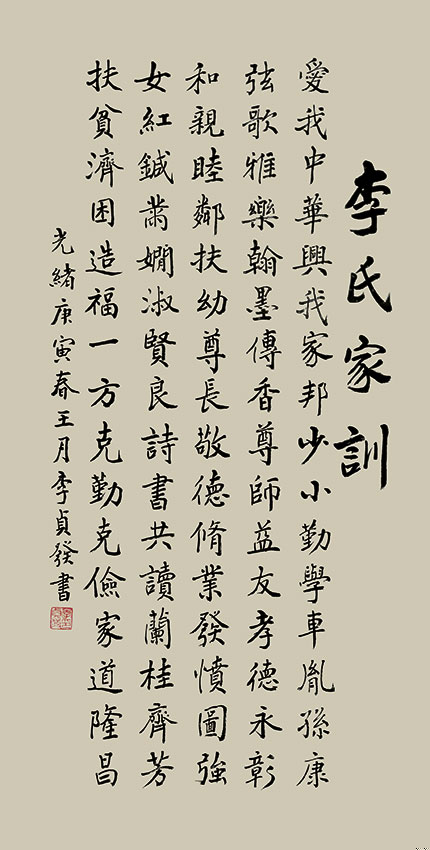 李氏家訓
愛我中華興我家邦少小勤學車胤孫康
弦歌雅樂翰墨傳香尊師益友孝德永彰
和親睦鄰扶幼尊長敬德脩業發憤圖強
女紅鍼黹嫻淑賢良詩書共讀蘭桂齊芳
扶貧濟困造福一方克勤克儉家道隆昌
光緒庚寅春王月李貞發書